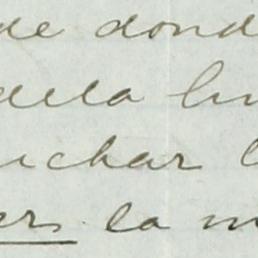 de dond
dela lu
uchar l
ers la m